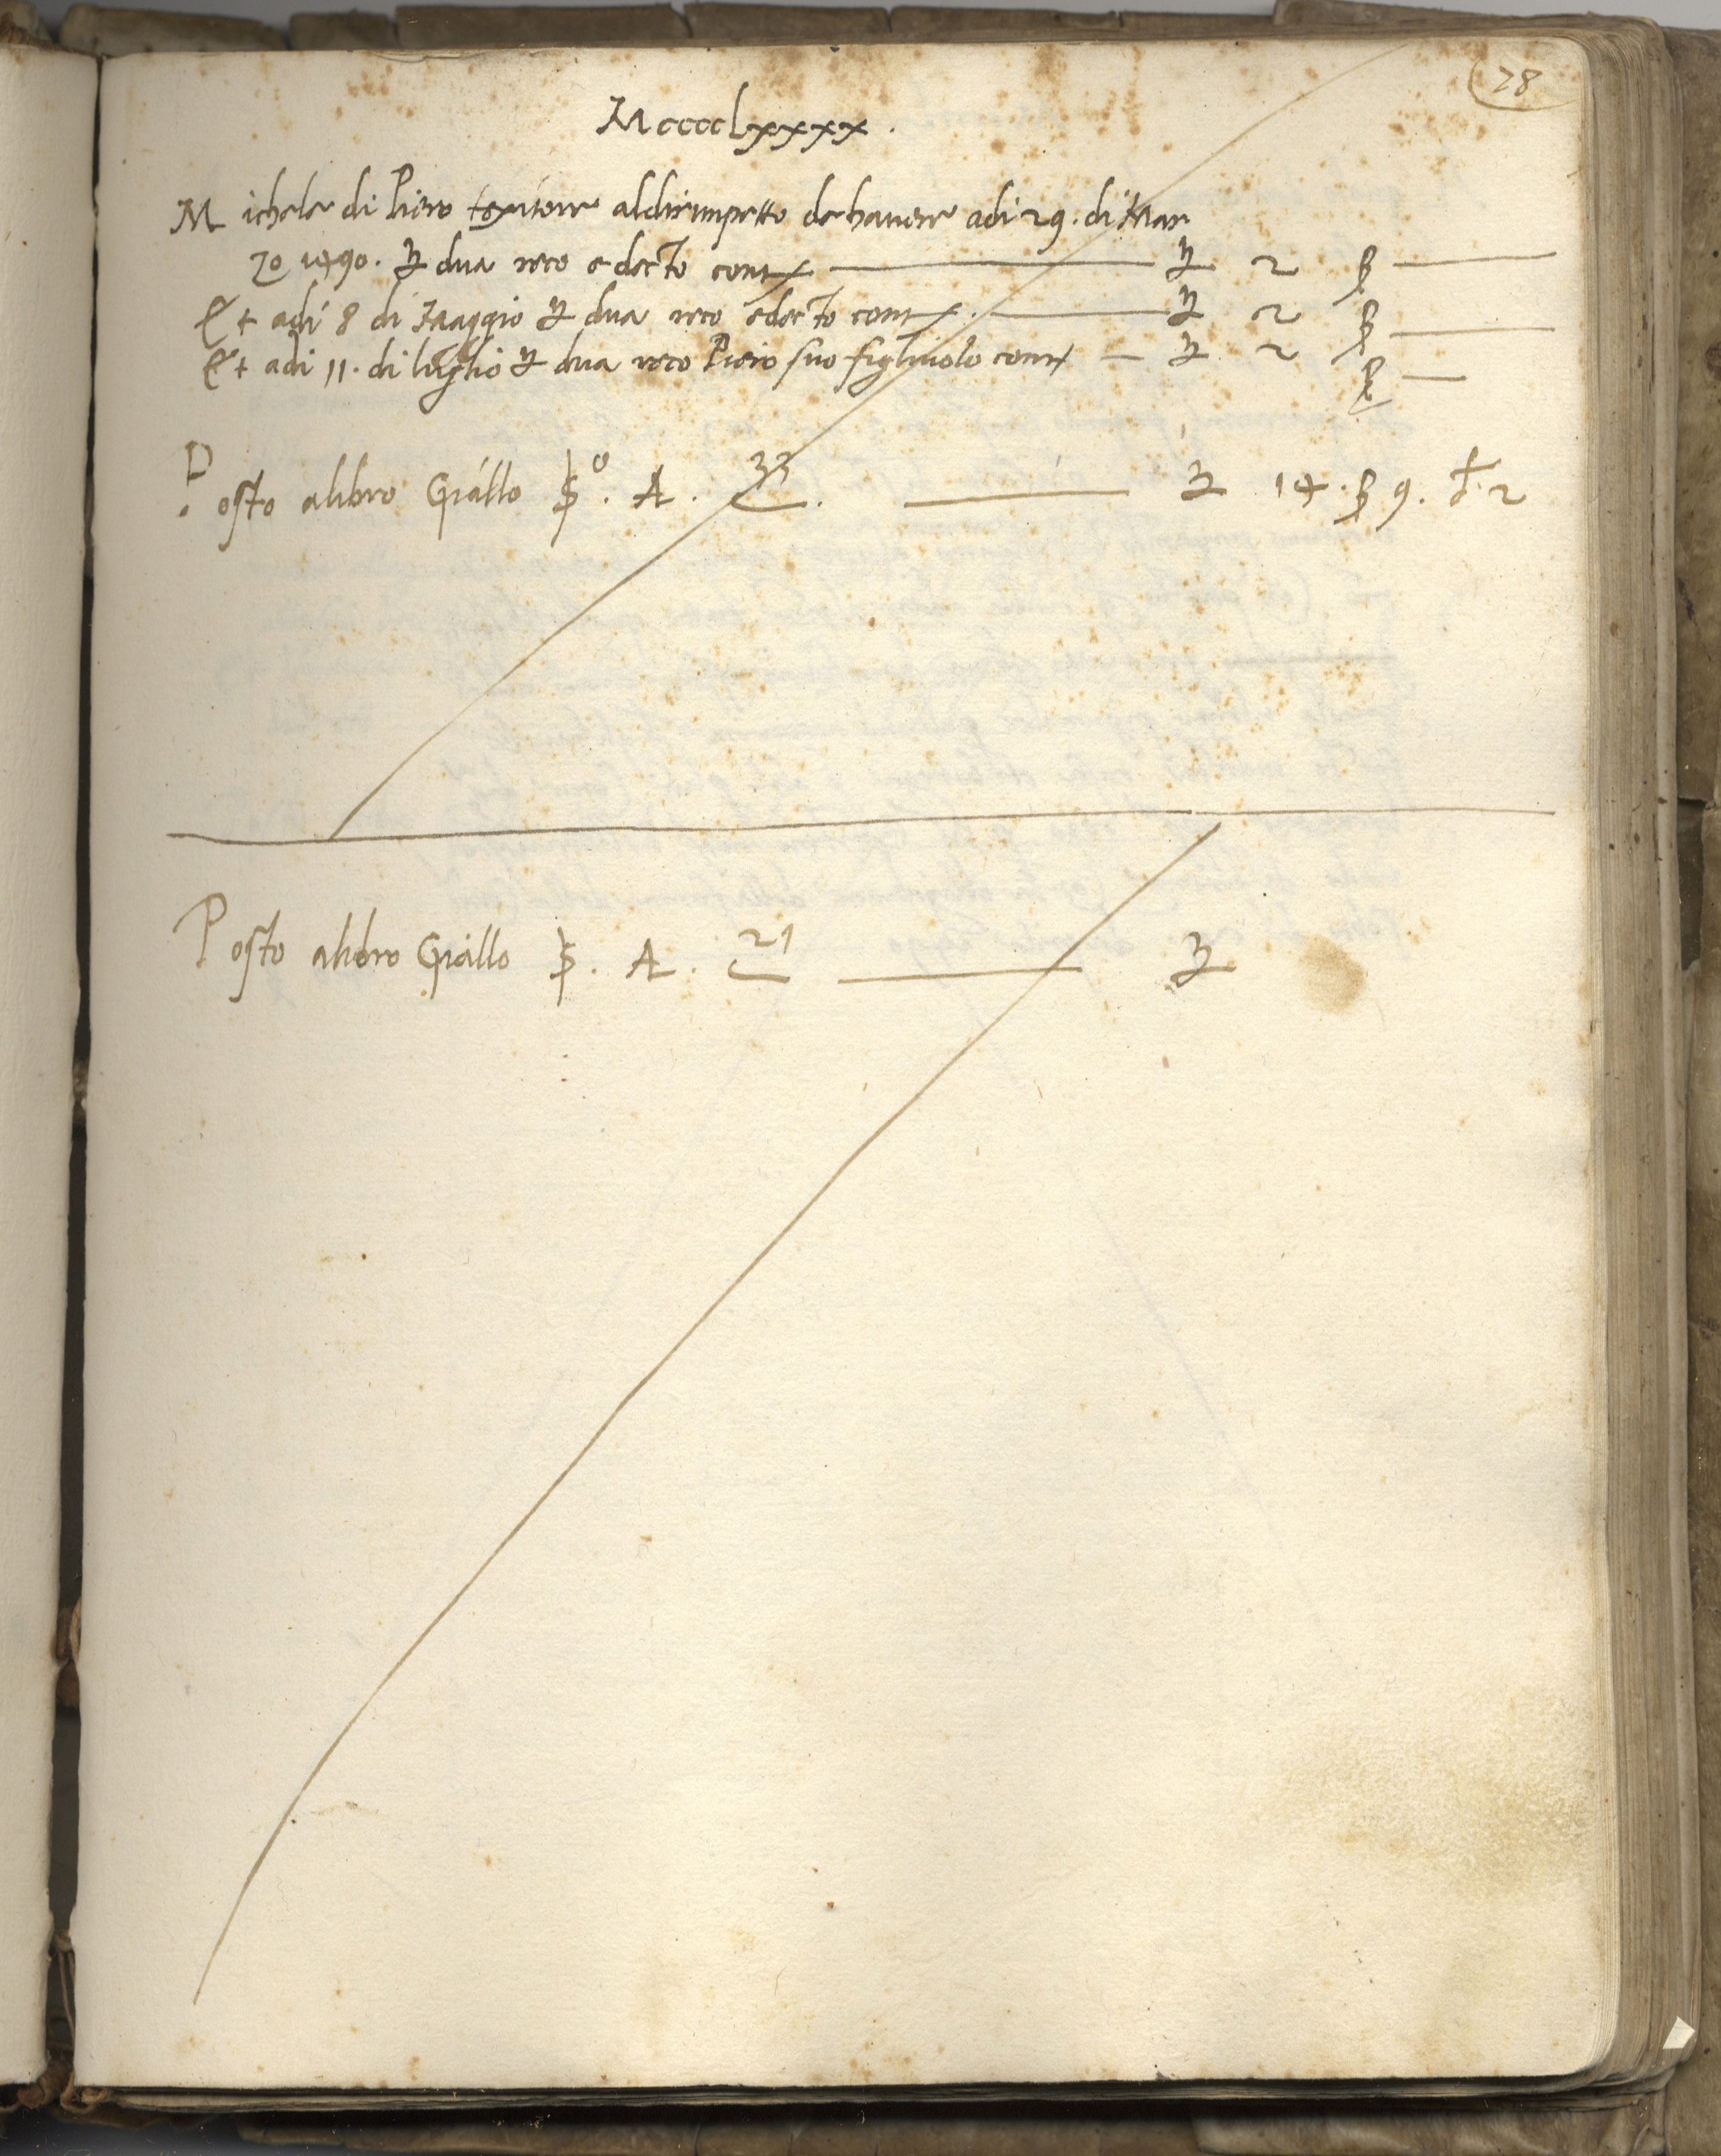 28
Mcccclxxxx.
Michele di Piero texitore aldirimpetto de havere adi 29. di Mar
zo 1490. ₤ dua reco e decto cont ₤ 2 ß
Et adi 8 di Maggio ₤ dua reco e decto cont. ₤ 2 ß
Et adi 11. di luglio ₤ dua reco Piero suo figliuolo cont ₤ 2 ß
Posto alibro Giallo . A . 33 . ₤ 14. ß 9. 2
Posto alibro Giallo . A . 21 ₤